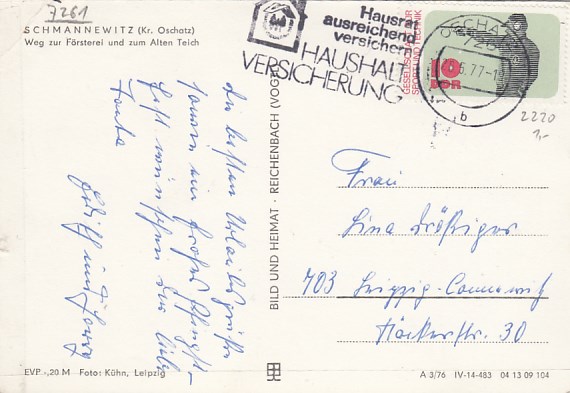 7261
SCHMANNEWITZ (Kr. Oschatz)
Weg zur Försterei und zum Alten Teich
Hausrat
ausreichend
versichern
HAUSHALT
VERSICHERUNG
GESELLSCHAFT FÜR
SPORT UND TECHNIK
10
DDR
OSCHATZ
726
.77-1
b
2220
1,-
Die besten Urlaubsgrüße
sowie ein frohes Pfingst-
fest wünschen der lieben
Tante
Edith und
BILD UND HEIMAT · REICHENBACH (VOGTL)
Frau
Lina
703 Leipzig-Connewitz
Häckerstr. 30
EVP -,20 M Foto: Kühn, Leipzig
A 3/76 IV-14-483 04 13 09 104